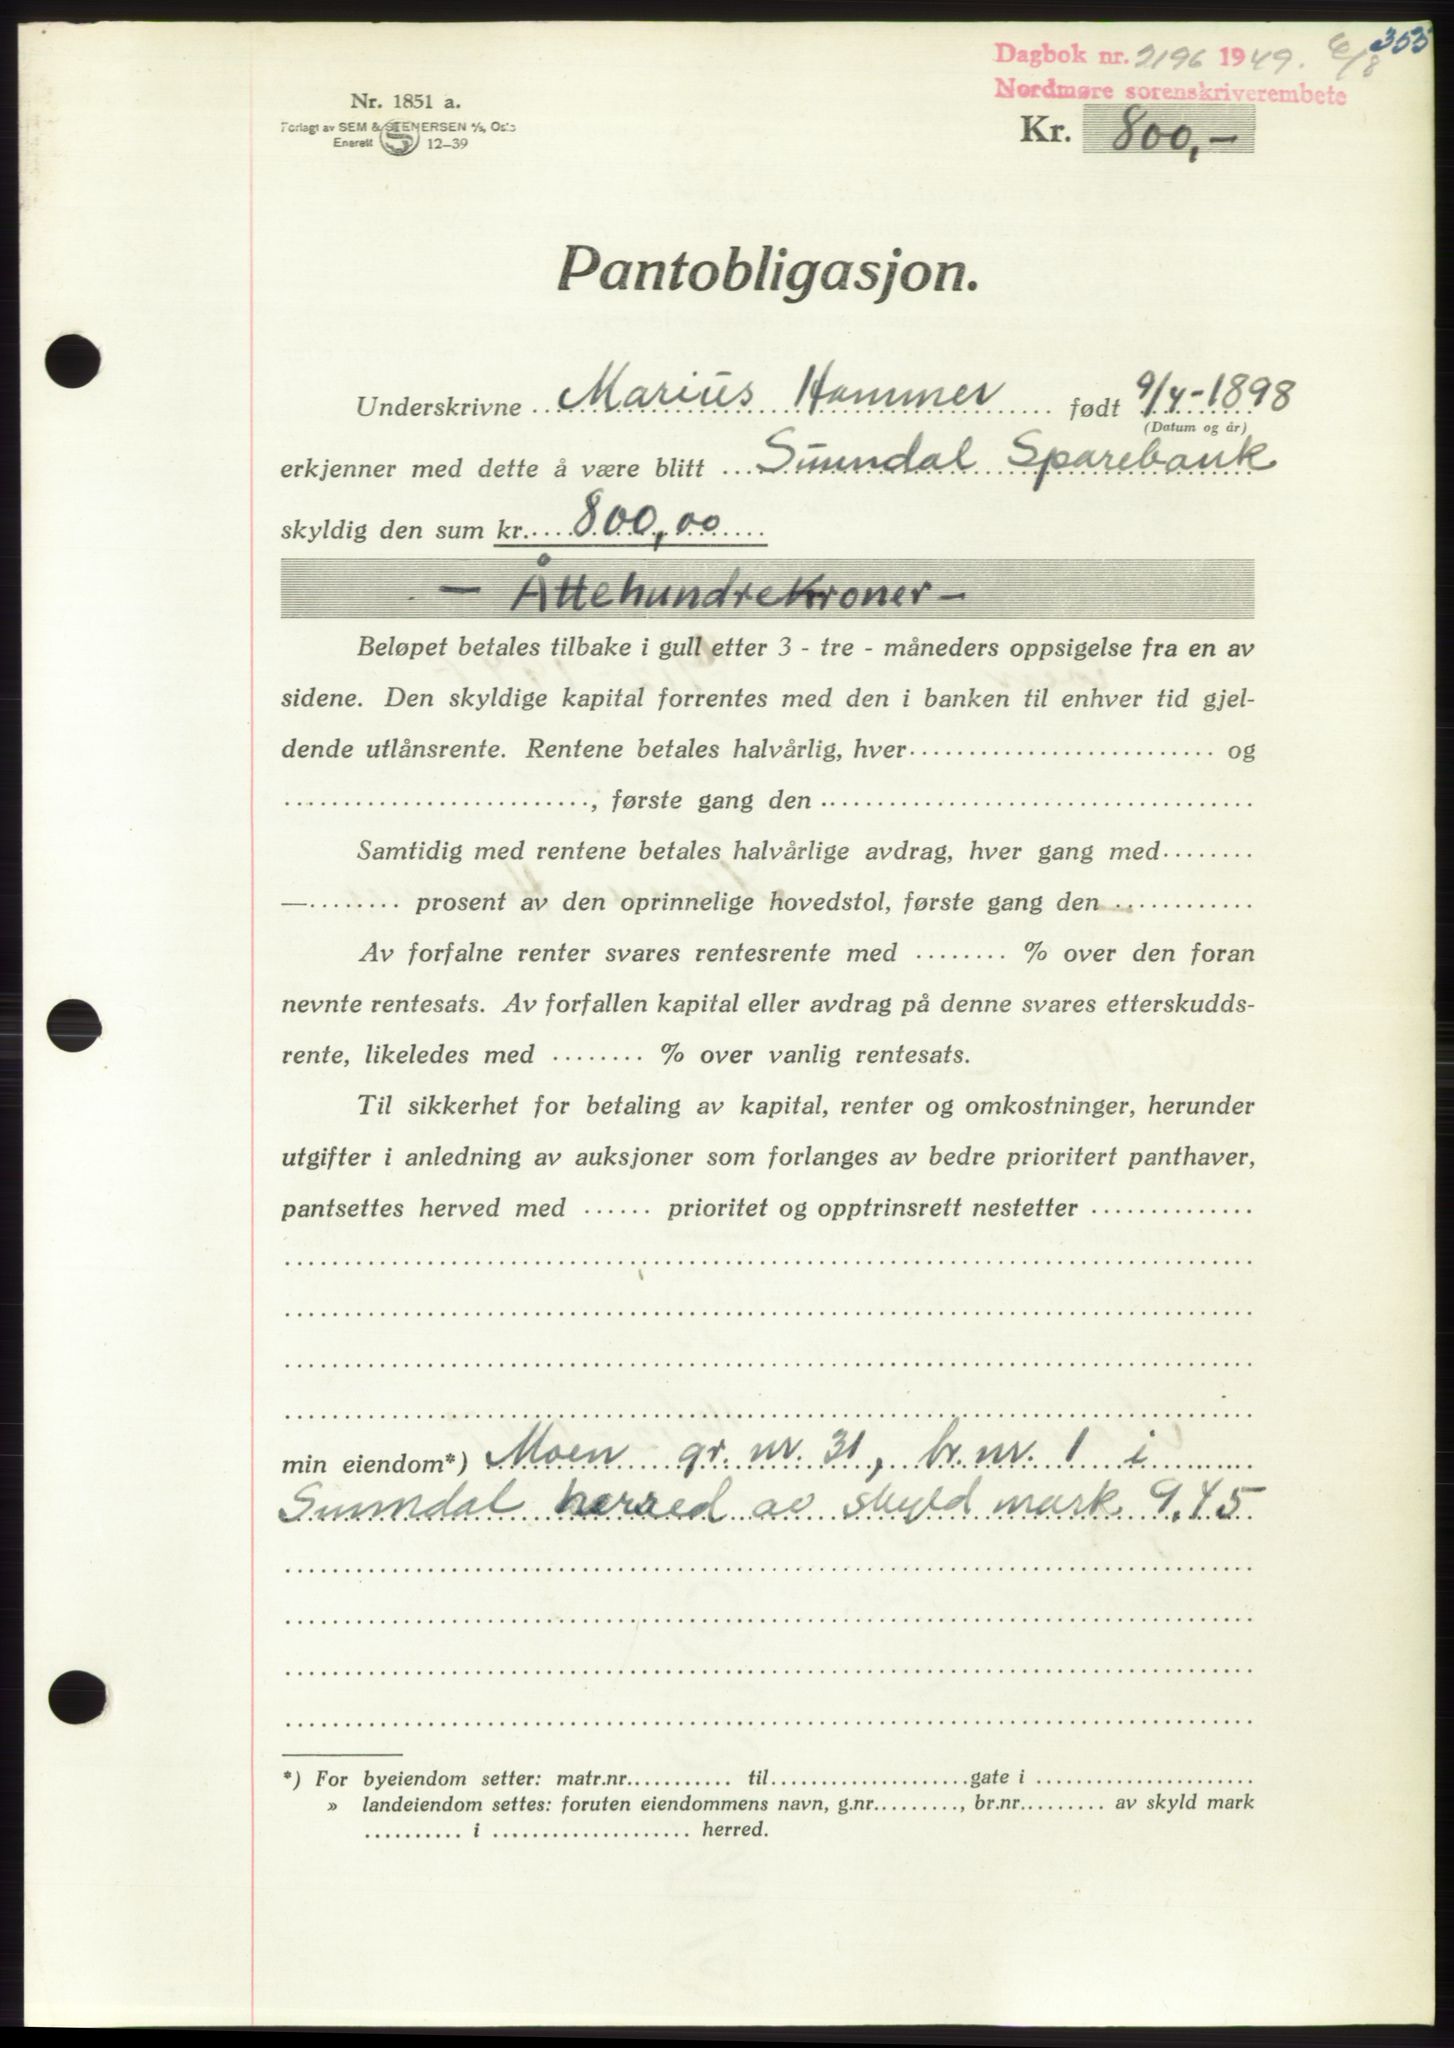 353
Dagbok nr. 2196 1949. 6/8
Nordmøre sorenskriverembete
Nr. 1851 a.
Forlagt av SEM & STENERSEN A/S, Oslo
Enerett 12–39
Kr. 800,–
Pantobligasjon.
Underskrivne Marius Hammer født 9/4-1898
(Datum og år)
erkjenner med dette å være blitt Sunndal Sparebank
skyldig den sum kr. 800,00
— Åttehundrekroner —
Beløpet betales tilbake i gull etter 3 - tre - måneders oppsigelse fra en av
sidene. Den skyldige kapital forrentes med den i banken til enhver tid gjel-
dende utlånsrente. Rentene betales halvårlig, hver .......... og
.........., første gang den ..........
Samtidig med rentene betales halvårlige avdrag, hver gang med ........
— ........ prosent av den oprinnelige hovedstol, første gang den ..........
Av forfalne renter svares rentesrente med ........ % over den foran
nevnte rentesats. Av forfallen kapital eller avdrag på denne svares etterskudds-
rente, likeledes med ........ % over vanlig rentesats.
Til sikkerhet for betaling av kapital, renter og omkostninger, herunder
utgifter i anledning av auksjoner som forlanges av bedre prioritert panthaver,
pantsettes herved med ...... prioritet og opptrinsrett nestetter ..........
min eiendom*) Moen gr. nr. 31, br. nr. 1 i
Sunndal herred av skyld mark 9.45
*) For byeiendom setter: matr.nr. .......... til .......... gate i ..........
» landeiendom settes: foruten eiendommens navn, g.nr. ........, br.nr. ........ av skyld mark
.......... i .......... herred.